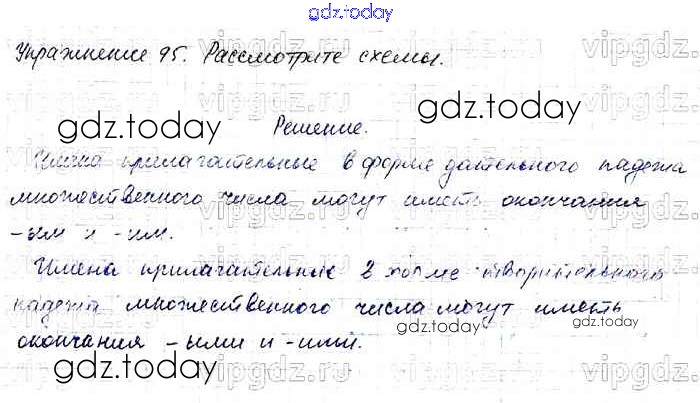 gdz.today
Упражнение 95. Рассмотрите схемы.
gdz.today
Решение.
gdz.today
Имена прилагательные в форме дательного падежа
множественного числа могут иметь окончания
-ым и -им.
Имена прилагательные в форме творительного
падежа множественного числа могут иметь
gdz.today
окончания -ыми и -ими.
gdz.today
vipgdz.ru